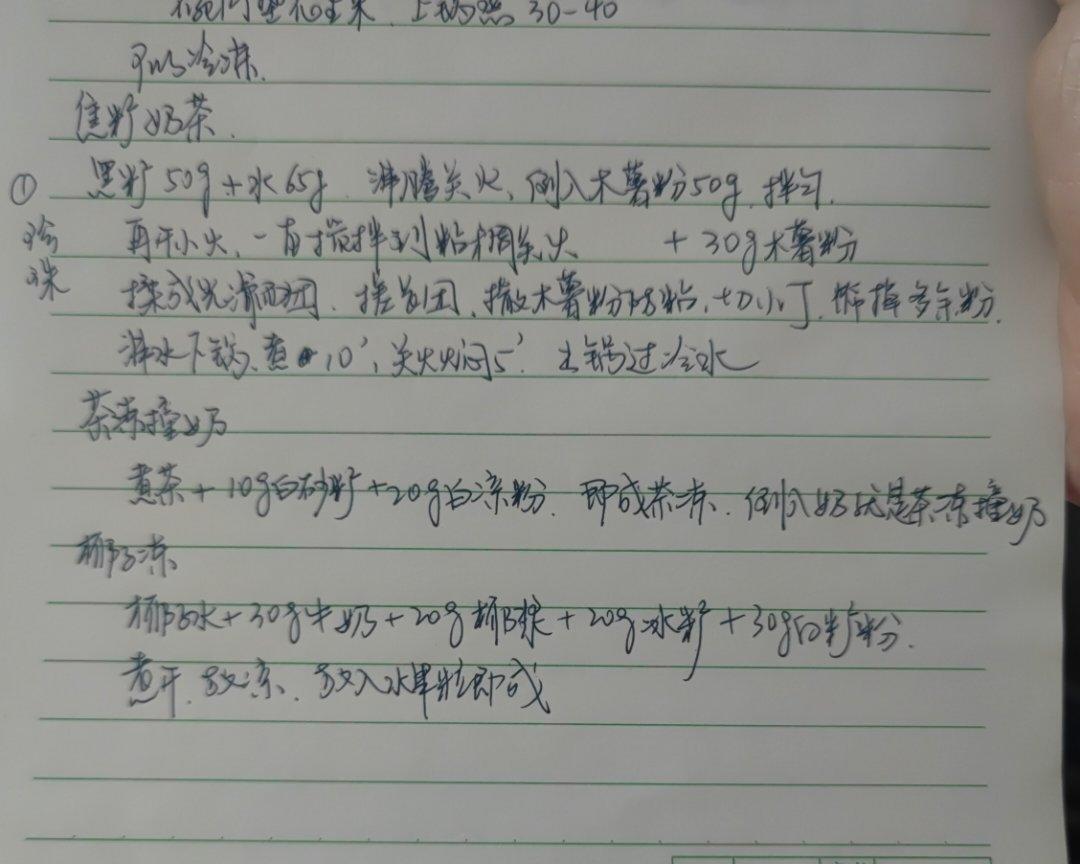 上锅蒸 30-40
可以冷冻.
焦糖奶茶.
① 黑糖50g+水65g. 沸腾关火、倒入木薯粉50g. 拌匀.
珍珠 再开小火、一直搅拌到粘稠关火 +30g木薯粉
揉成光滑面团. 搓长团、撒木薯粉防粘、切小丁. 筛掉多余粉.
沸水下锅、煮10'、关火焖5'. 出锅过冷水
茶冻撞奶
煮茶+10g白砂糖+20g白凉粉. 即成茶冻. 倒入奶就是茶冻撞奶
椰子冻
椰子水+30g牛奶+20g椰浆+20g冰糖+30g白糖粉.
煮开. 放凉、放入水果粒即成